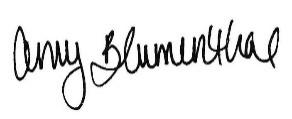 Amy Blumenthal